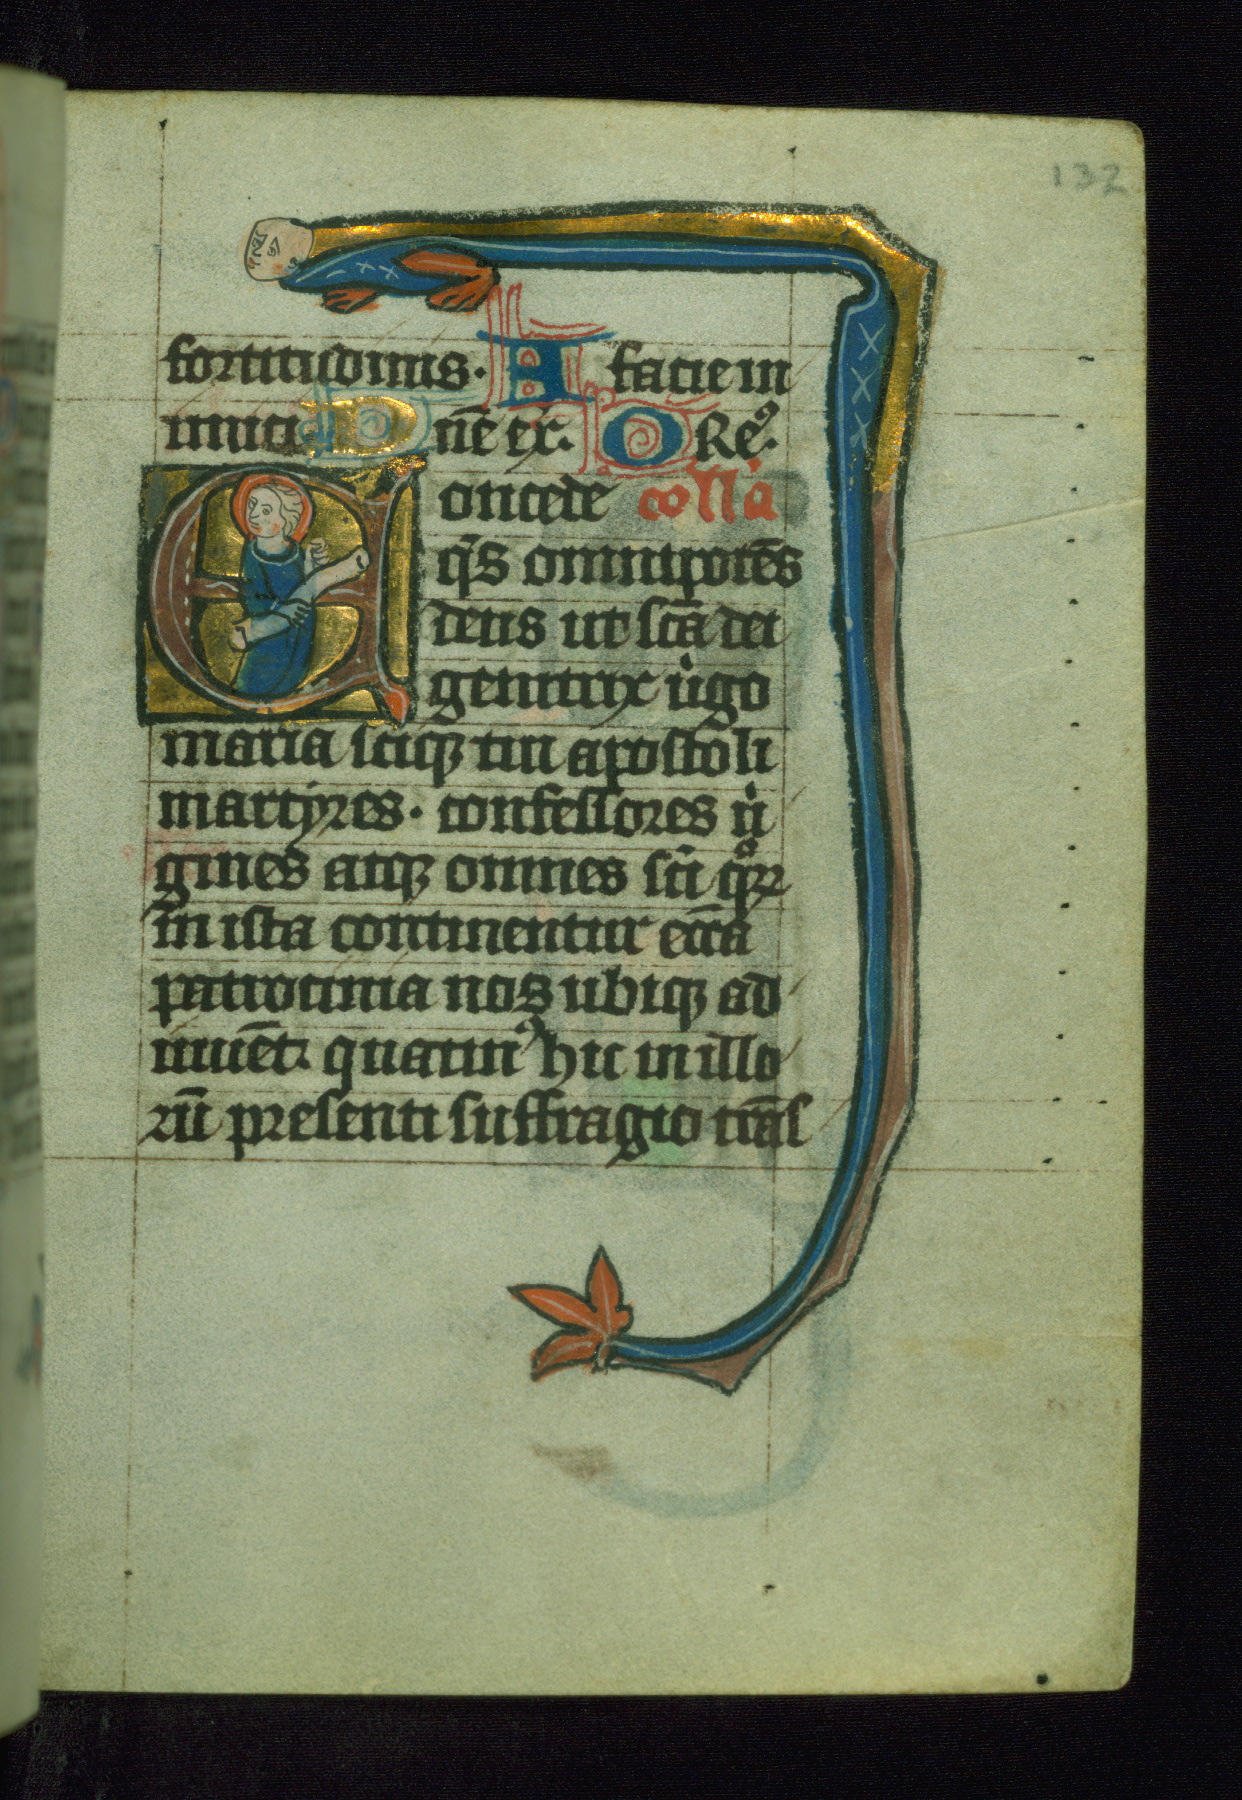 132
fortitudinis. A facie in
imici Dn̄e ex. ORe᷒.
Concede coll̄a
q̄s omnipotēs
deus ut sc̄a dei
genitrix uigo
maria sciq tui apostoli
martyres. confessores ui
gines atq omnes sc̄i qͦꝝ
in ista continentur ecc̄a
patrocinia nos ubiq ad
iuuēt. quatin᷒ hic in illo
rū presenti suffragio trās